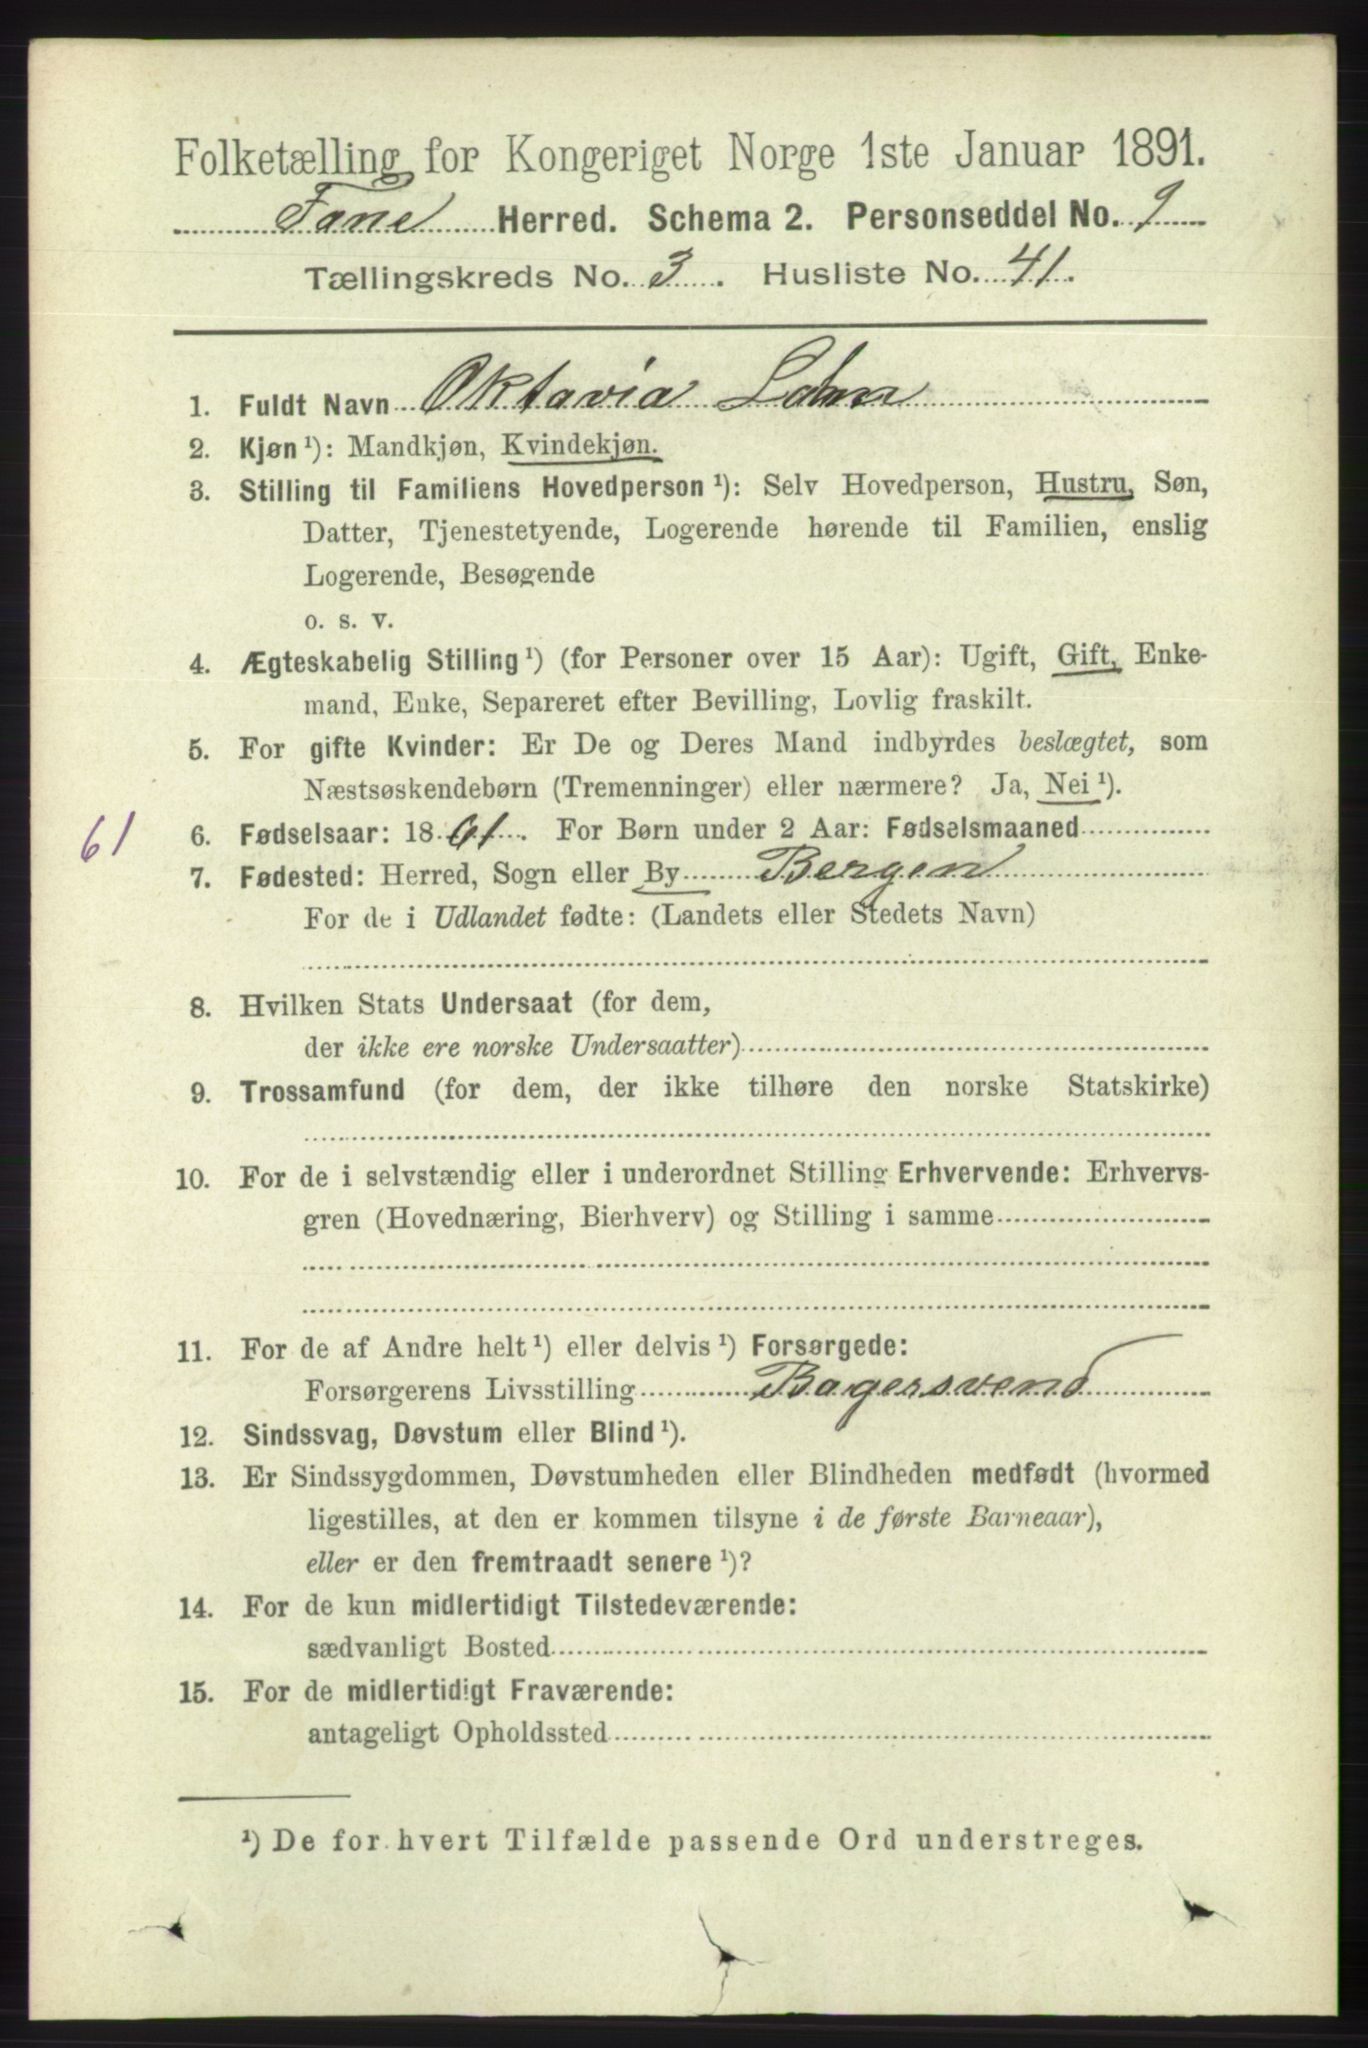 Folketælling for Kongeriget Norge 1ste Januar 1891.
Fane Herred. Schema 2. Personseddel No. 9
Tællingskreds No. 3. Husliste No. 41.
1. Fuldt Navn Oktavia
2. Kjøn ¹): Mandkjøn, Kvindekjøn.
3. Stilling til Familiens Hovedperson ¹): Selv Hovedperson, Hustru, Søn,
Datter, Tjenestetyende, Logerende hørende til Familien, enslig
Logerende, Besøgende
o. s. v.
4. Ægteskabelig Stilling ¹) (for Personer over 15 Aar): Ugift, Gift, Enke-
mand, Enke, Separeret efter Bevilling, Lovlig fraskilt.
5. For gifte Kvinder: Er De og Deres Mand indbyrdes beslægtet, som
Næstsøskendebørn (Tremenninger) eller nærmere? Ja, Nei ¹).
61
6. Fødselsaar: 1861. For Børn under 2 Aar: Fødselsmaaned
7. Fødested: Herred, Sogn eller By Bergen
For de i Udlandet fødte: (Landets eller Stedets Navn)
8. Hvilken Stats Undersaat (for dem,
der ikke ere norske Undersaatter)
9. Trossamfund (for dem, der ikke tilhøre den norske Statskirke)
10. For de i selvstændig eller i underordnet Stilling Erhvervende: Erhvervs-
gren (Hovednæring, Bierhverv) og Stilling i samme
11. For de af Andre helt ¹) eller delvis ¹) Forsørgede:
Forsørgerens Livsstilling Bagersvend
12. Sindssvag, Døvstum eller Blind ¹).
13. Er Sindssygdommen, Døvstumheden eller Blindheden medfødt (hvormed
ligestilles, at den er kommen tilsyne i de første Barneaar),
eller er den fremtraadt senere ¹)?
14. For de kun midlertidigt Tilstedeværende:
sædvanligt Bosted
15. For de midlertidigt Fraværende:
antageligt Opholdssted
¹) De for hvert Tilfælde passende Ord understreges.